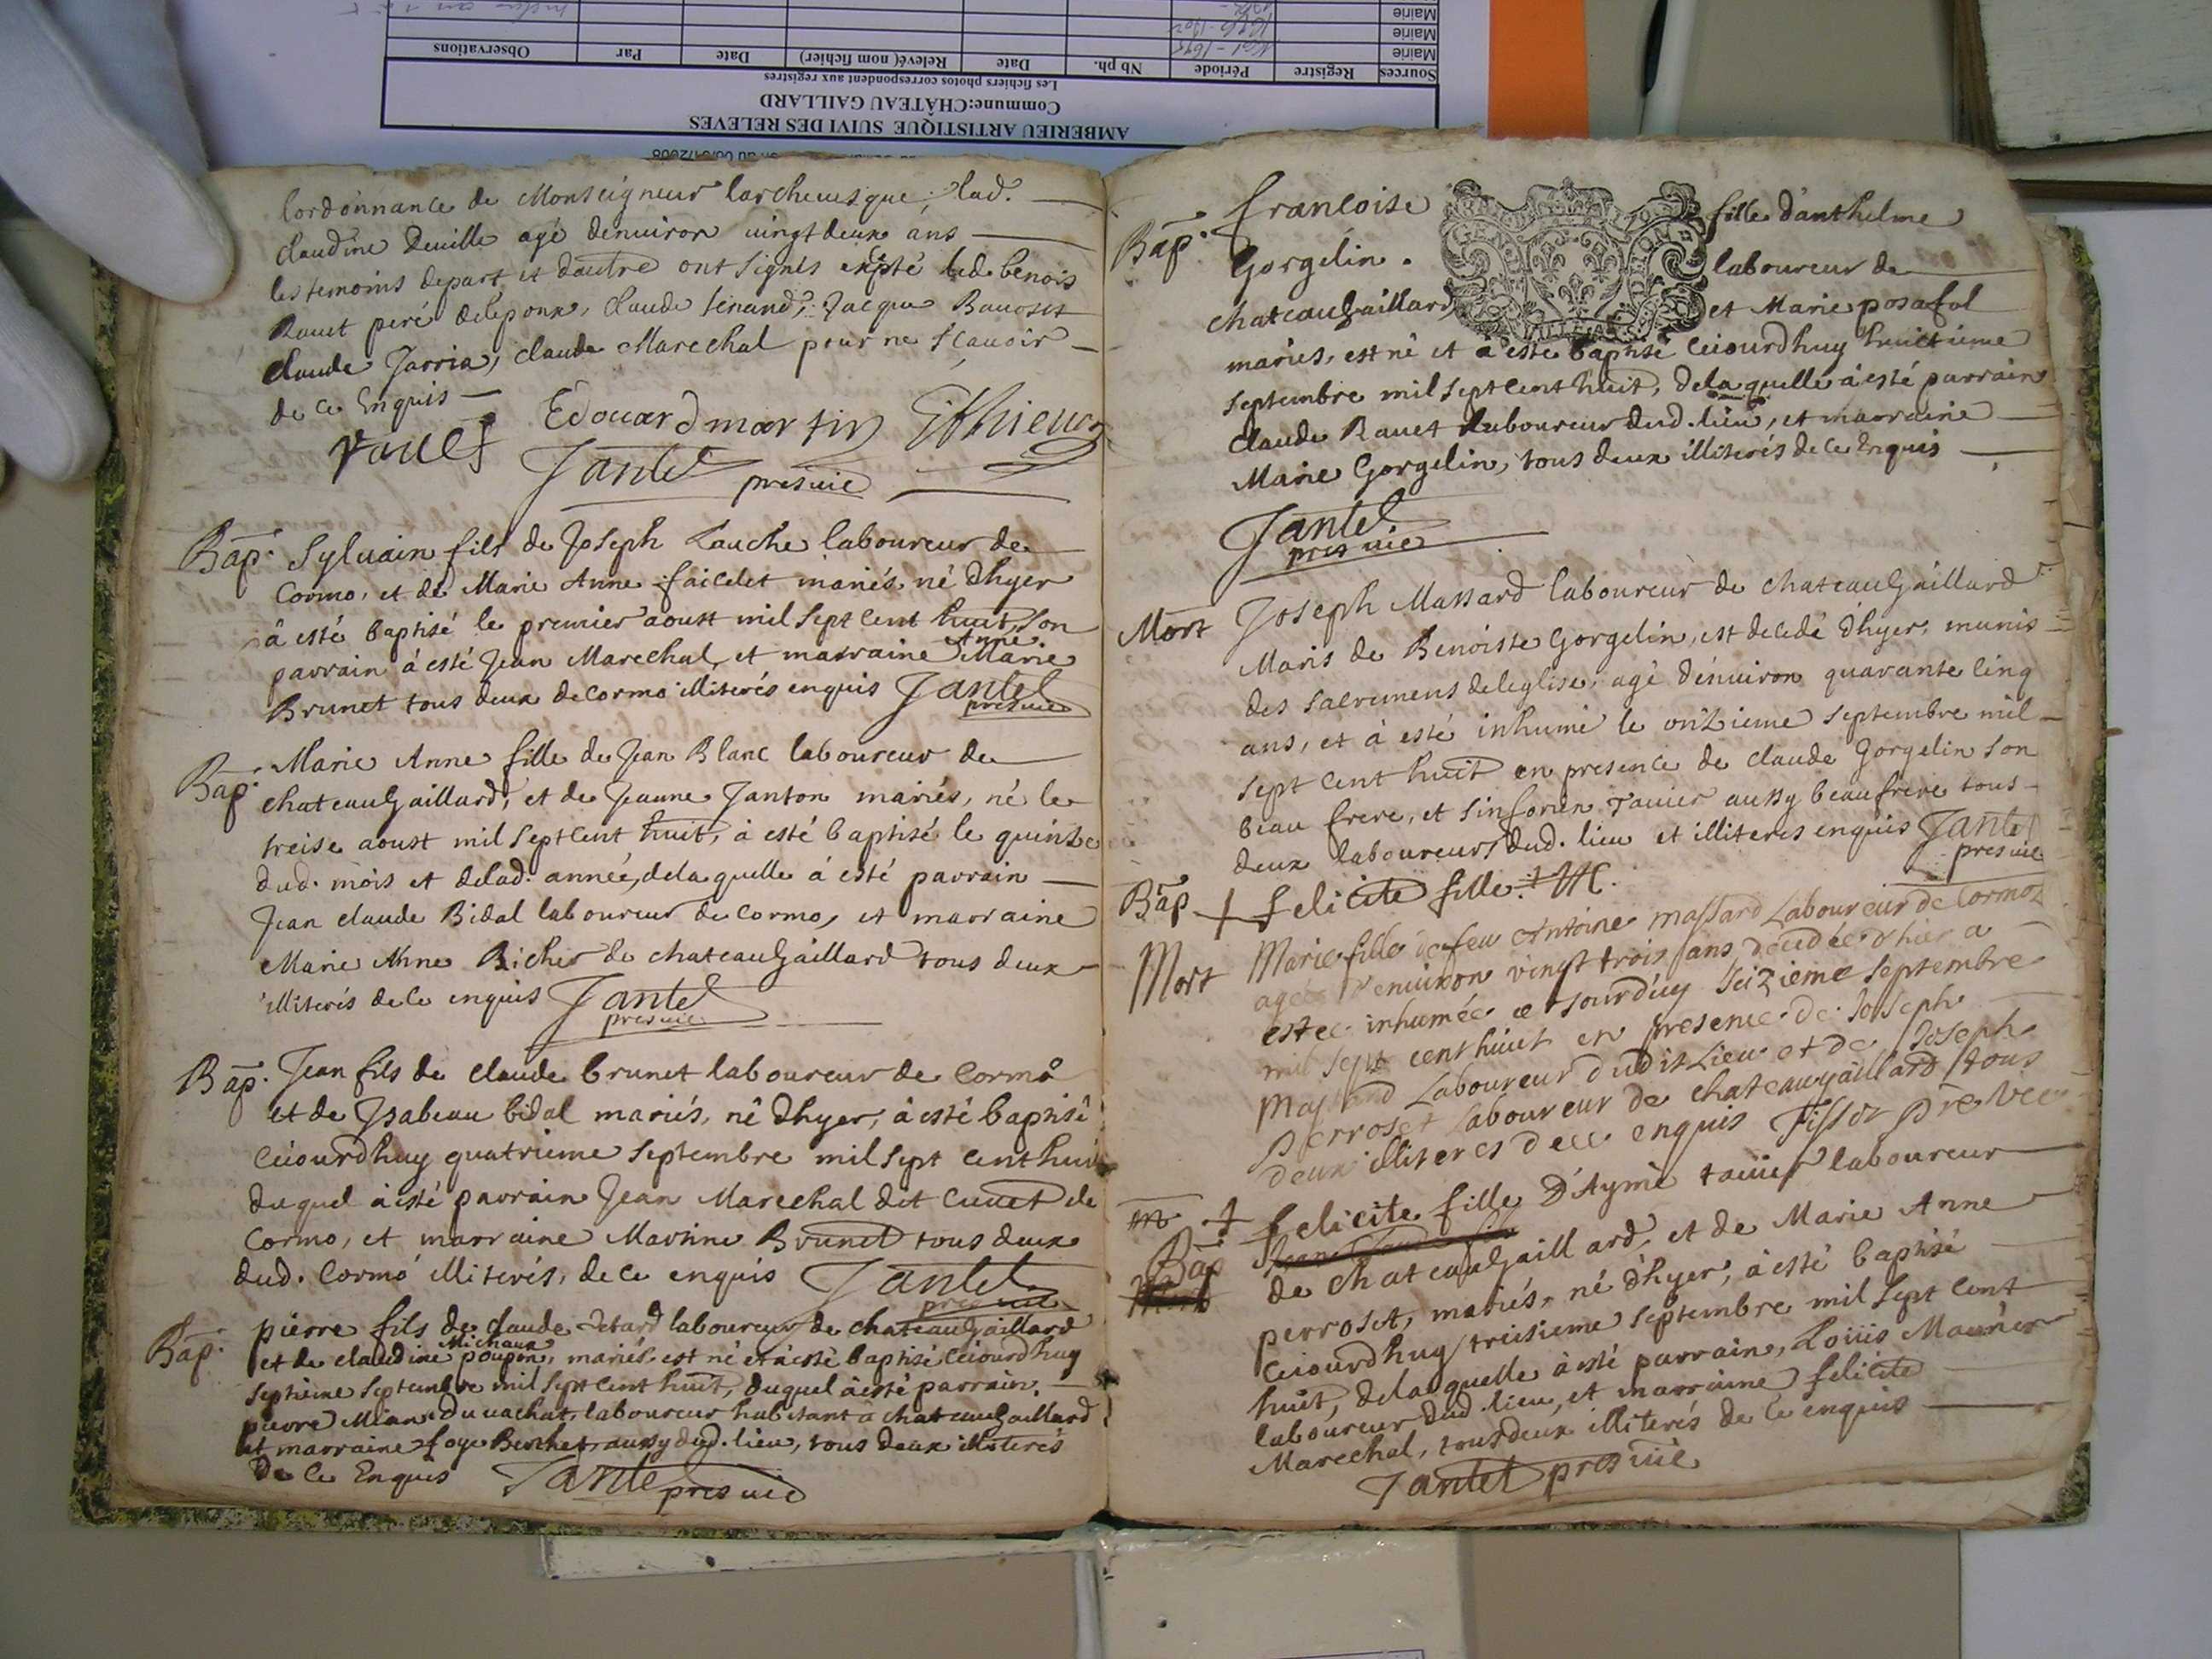 AMBERIEU ARTISTIQUE SUIVI DES RELEVES
Commune:CHÂTEAU GAILLARD
Les fichiers photos correspondent aux registres
Sources Registre Période Nb ph. Date Relevé(nom fichier) Date Par Observations
Mairie
Mairie
Mairie
lordonnance de Monseigneur larcheuesque, lad.
claudine Deuille agé denuiron uingtdeux ans
les temoins depart et dautre ont signés exepté led. benois
Rauet peré delepoux, claude , Jacque Bauoset
claude Jarria, claude Marechal pour ne scauoir
de ce Enquis
rauet Edouard martin
Jantet presuic
Bap. Syluain fils de Joseph Lauche laboureur de
Cormo, et de Marie Anne faicelet mariés, né dhyer
à esté baptisé le premier aoust mil sept cent huit, son
Anne
parrain á esté Jean Marechal, et marraine Marie
Brunet tous deux de Cormo illiterés enquis Jantet
presuic
Bap. Marie Anne fille de Jean Blanc laboureur de
chateauGaillard, et de Jeanne Janton mariés, né le
treise aoust mil septcent huit, à esté baptisé le quinze
dud. mois et delad. année, dela quelle á esté parrain
Jean claude Bidal laboureur de Cormo, et marraine
Marie Anne Richer de chateauGaillard tous deux
illiterés de ce enquis Jantet
presuic
Bap. Jean fils de claude brunet laboureur de Cormo
et de Ysabeau bidal mariés, né dhyer, à esté baptisé
Ceiourdhuy quatrieme septembre mil sept cent huit
duquel à esté parrain Jean Marechal dit Cuuet de
Cormo, et marraine Martine Brunet tous deux
dud. Cormo illiterés, de ce enquis Jantet
presuic
Bap. pierre fils de claude laboureur de chateauGaillard
Michaux
et de claudine poupon, mariés, est né et à esté baptisé Ceiourdhuy
septieme septembre mil sept cent huit, duquel à esté parrain
pierre Mian Du uachat, laboureur habitant à chateauGaillard
et marraine foye Berchet, aussy dud. lieu, tous deux illiterés
De ce Enquis Jantet presuic
Bap. francoise fille d'anthelme
Gorgelin. laboureur de
chateauGaillard et Marie posafol
mariés, est né et à esté baptisé Ceiourdhuy huictieme
septembre mil septcent huit, dela quelle à esté parrain
claude Rauet laboureur dud. lieu, et marraine
Marie Gorgelin, tous deux illiterés de ce Enquis
Jantet
presuic
Mort Joseph Massard laboureur de chateauGaillard
Maris de Benoiste Gorgelin, est decedé d'hyer, munis
des sacremens deleglise, agé denuiron quarante cinq
ans, et à esté inhumé le onzieme septembre mil
sept cent huit en presence de claude Gorgelin son
beau frere, et sinforien Tauier aussy beaufrere tous
deux laboureurs dud. lieu et illiterés enquis Jantet
presuic
Bap + felicite fille +
Mort Marie fille de feu Antoine massard Laboureur de Cormoz
agée denuiron vingt trois ans decedée d'hier a
estée inhumée ce Jourd'uy seizieme septembre
mil sept cent huict en presence de Joseph
Massard Laboureur dudit Lieu et de Joseph
perroset Laboureur de chateaugaillard tous
deux illiteres de ce enquis Tissot
+ felicite fille D'Aymé tauier laboureur
Bap de chateauGaillard, et de Marie Anne
perroset, mariés, né d'hyer, à esté baptisé
Ceiourdhuy treisieme septembre mil sept cent
huit, dela quelle à esté parrain, Loüis Maunier
laboureur dud. lieu, et marraine felicite
Marechal, tous deux illiterés de ce enquis
Jantet presuic